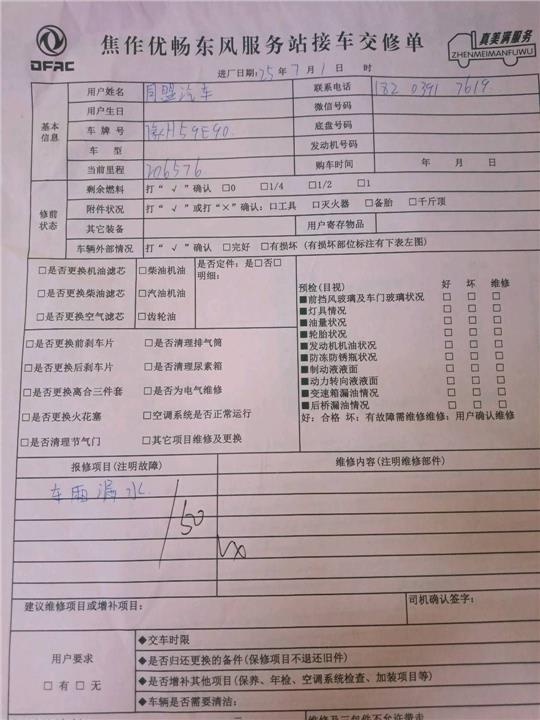 DFAC
焦作优畅东风服务站接车交修单
真美满服务
ZHENMEIMANFUWU
进厂日期: 25年 7月 1日 时
基本信息
用户姓名 同盟汽车 联系电话 182 0391 7619
用户生日 微信号码
车牌号 豫H59E90 底盘号码
车型 发动机号码
当前里程 206576 购车时间 年 月 日
修前状态
剩余燃料 打“√”确认 □0 □1/4 □1/2 □1
附件状况 打“√”或打“×”确认: □工具 □灭火器 □备胎 □千斤顶
其它装备 用户寄存物品
车辆外部情况 打“√”确认 □完好 □有损坏 (有损坏部位标注有下表左图)
□是否更换机油滤芯 □柴油机油 是否定件: 是□否□
明细:
□是否更换柴油滤芯 □汽油机油
□是否更换空气滤芯 □齿轮油
□是否更换前刹车片 □是否清理排气筒
□是否更换后刹车片 □是否清理尿素箱
□是否更换离合三件套 □是否为电气维修
□是否更换火花塞 □空调系统是否正常运行
□是否清理节气门 □其它项目维修及更换
预检(目视) 好 坏 维修
■前挡风玻璃及车门玻璃状况 □ □ □
■灯具情况 □ □ □
■油量状况 □ □ □
■轮胎状况 □ □ □
■发动机机油状况 □ □ □
■防冻防锈瓶状况 □ □ □
■制动液液面 □ □ □
■动力转向液液面 □ □ □
■变速箱漏油情况 □ □ □
■后桥漏油情况 □ □ □
好: 合格 坏: 有故障需维修维修: 用户确认维修
报修项目(注明故障) 维修内容(注明维修部件)
车雨漏水
150
建议维修项目或增补项目: 司机确认签字:
用户要求
□有 □无
◆交车时限
◆是否归还更换的备件(保修项目不退还旧件)
◆是否增补其他项目(保养、年检、空调系统检查、加装项目等)
◆车辆是否需要清洁:
维修及三包件不允许带走